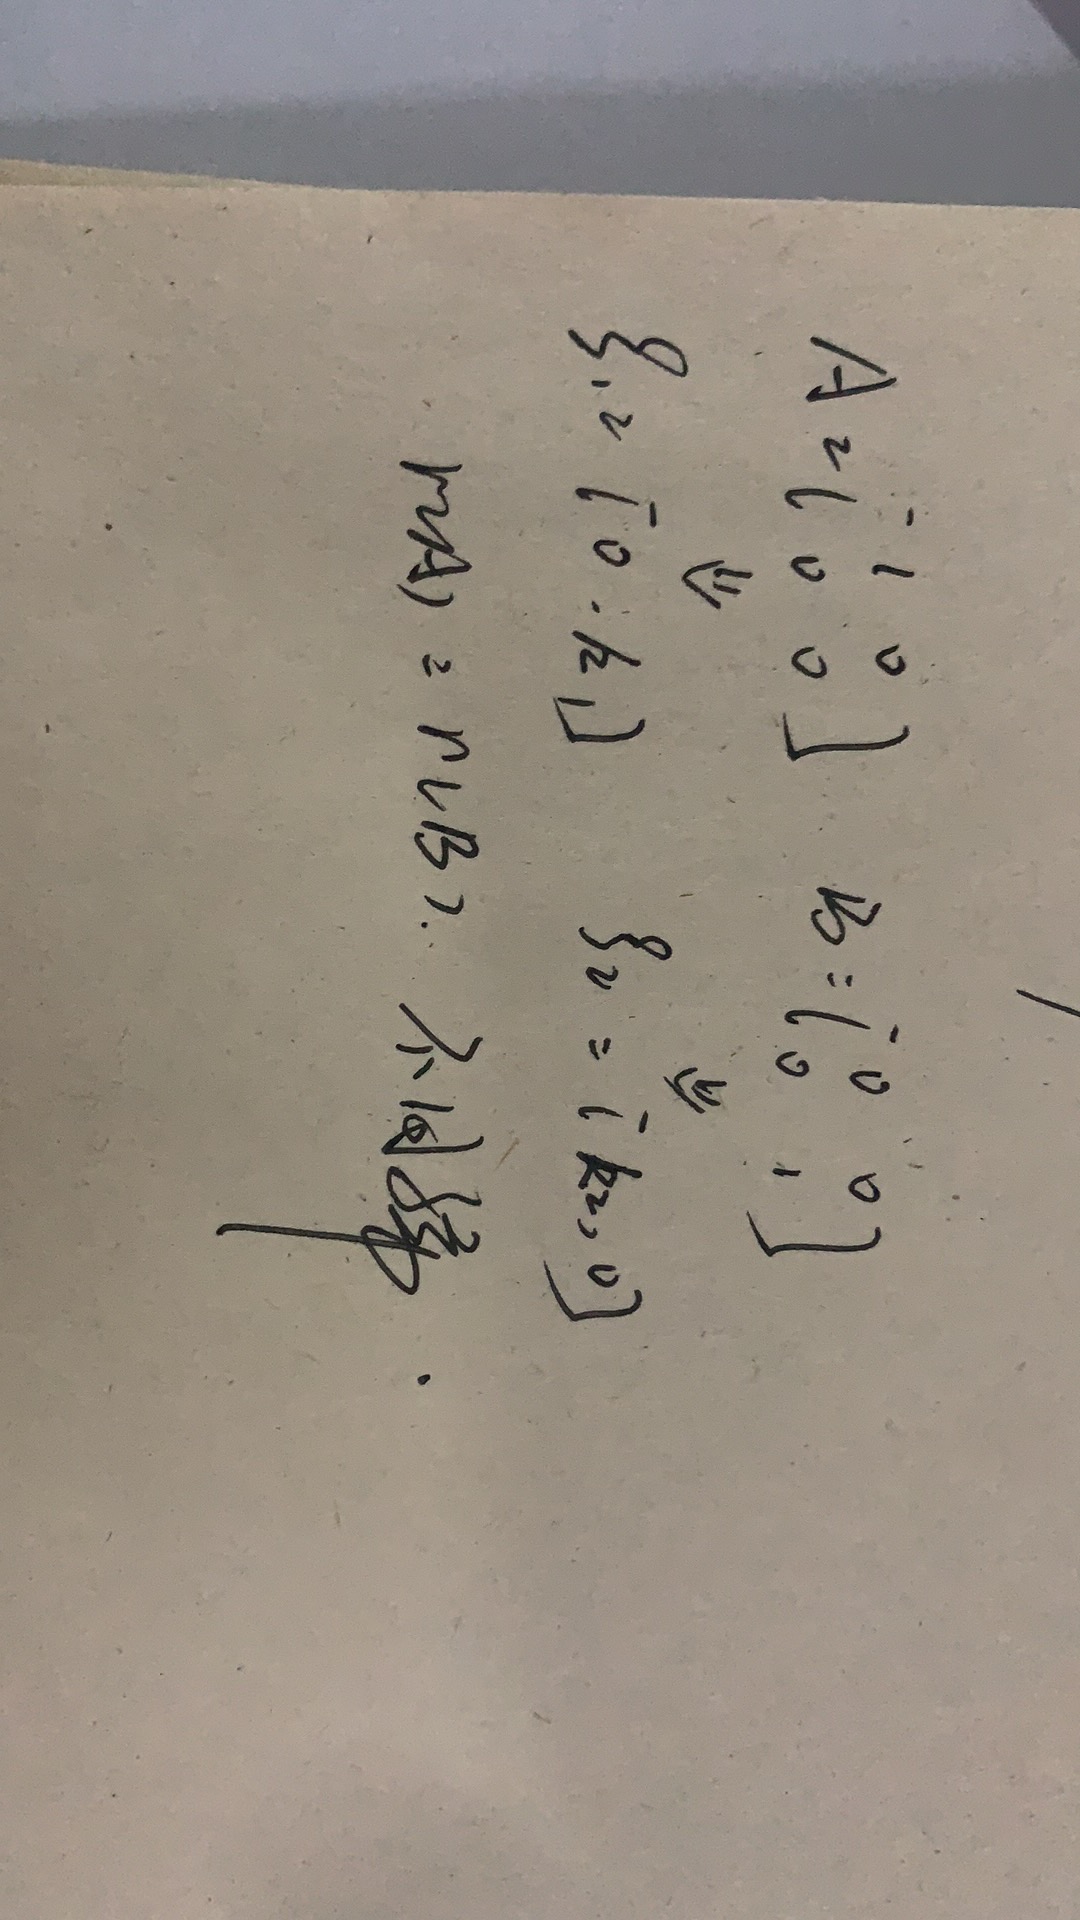 A = [ 1 0 B = [ 0 0
0 0 ] 0 1 ]
⇓ ⇓
ξ1 = [ 0, k1 ] ξ2 = [ k2, 0 ]
r(A) = r(B). 不同解.